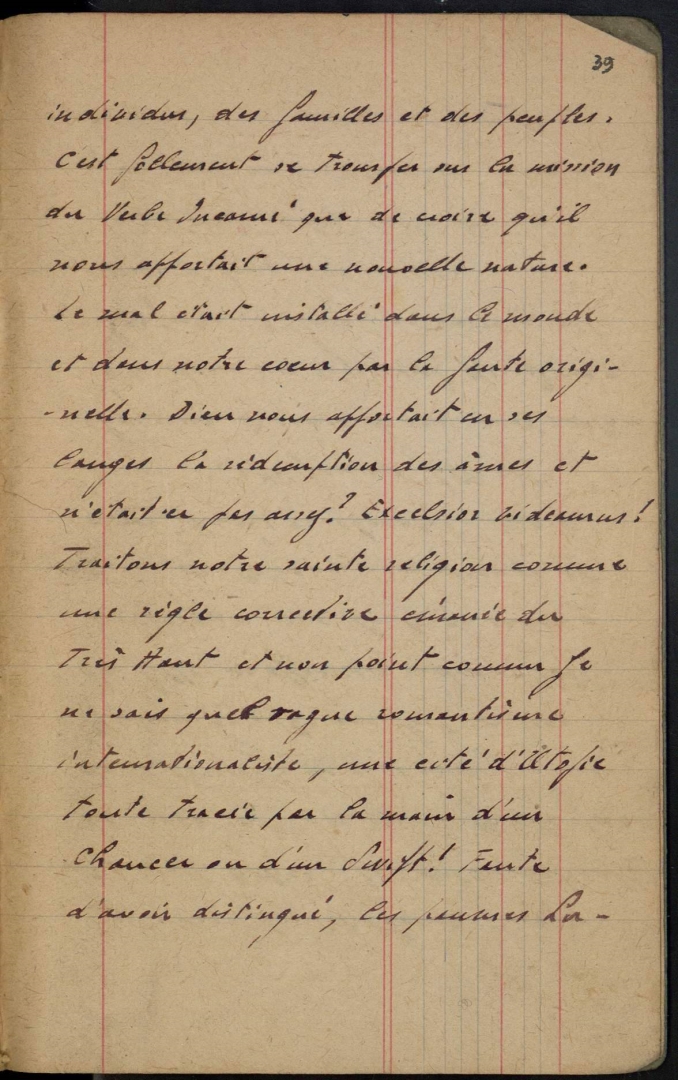 39
individus, des familles et des peuples.
C'est follement se tromper sur la mission
du Verbe Incarné que de croire qu'il
nous apportait une nouvelle nature.
Le mal était installé dans le monde
et dans notre coeur par la faute origi-
-nelle. Dieu nous apportait en ses
langes la rédemption des âmes et
n'était-ce pas assez? Excelsior videamus!
Traitons notre sainte religion comme
une règle corrective émanée du
Très Haut et non point comme je
ne sais quel vague romantisme
internationaliste, une cité d'Utopie
toute tracée par la main d'un
Chaucer ou d'un Swift! Faute
d'avoir distingué, les pauvres La-